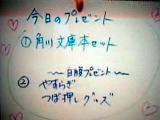 今日のプレゼント
①角川文庫本セット
〜自腹プレゼント〜
②やすらぎ
つぼ押しグッズ